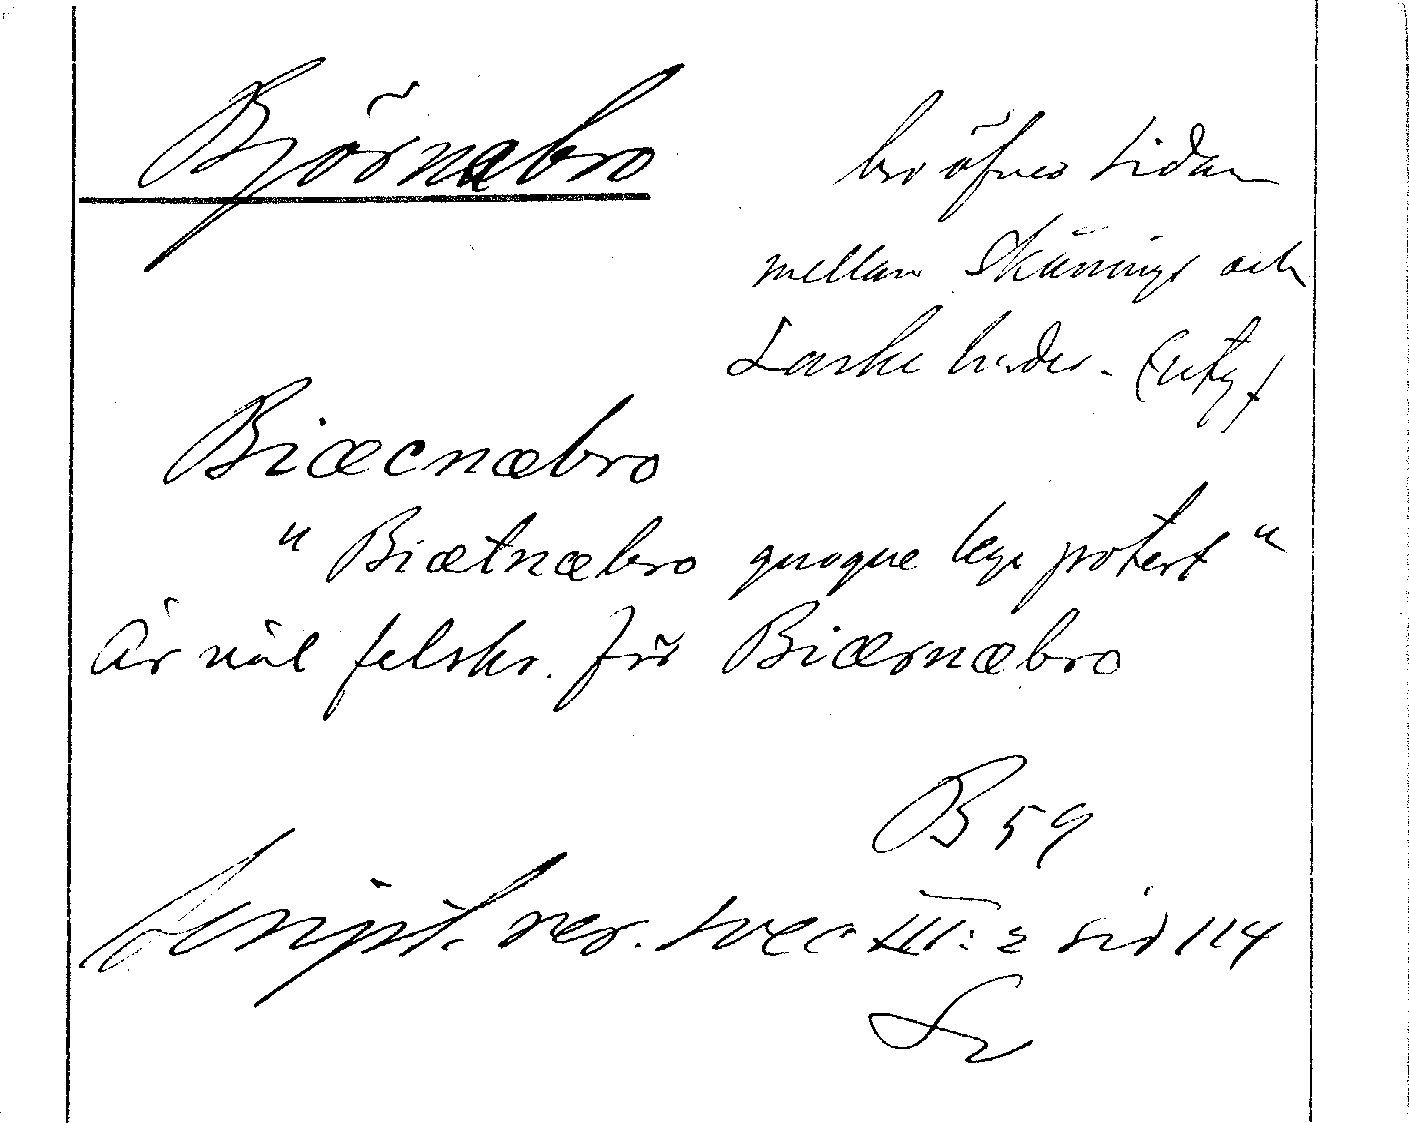 Björnabro
bro öfver Lidan
mellan Skånings och
Laske härder. (utg)
Biæcnæbro
"Biætnæbro quoque legi potest"
är väl felskr. för Biærnæbro
B 59
Script. rer. svec III: 2 sid 114